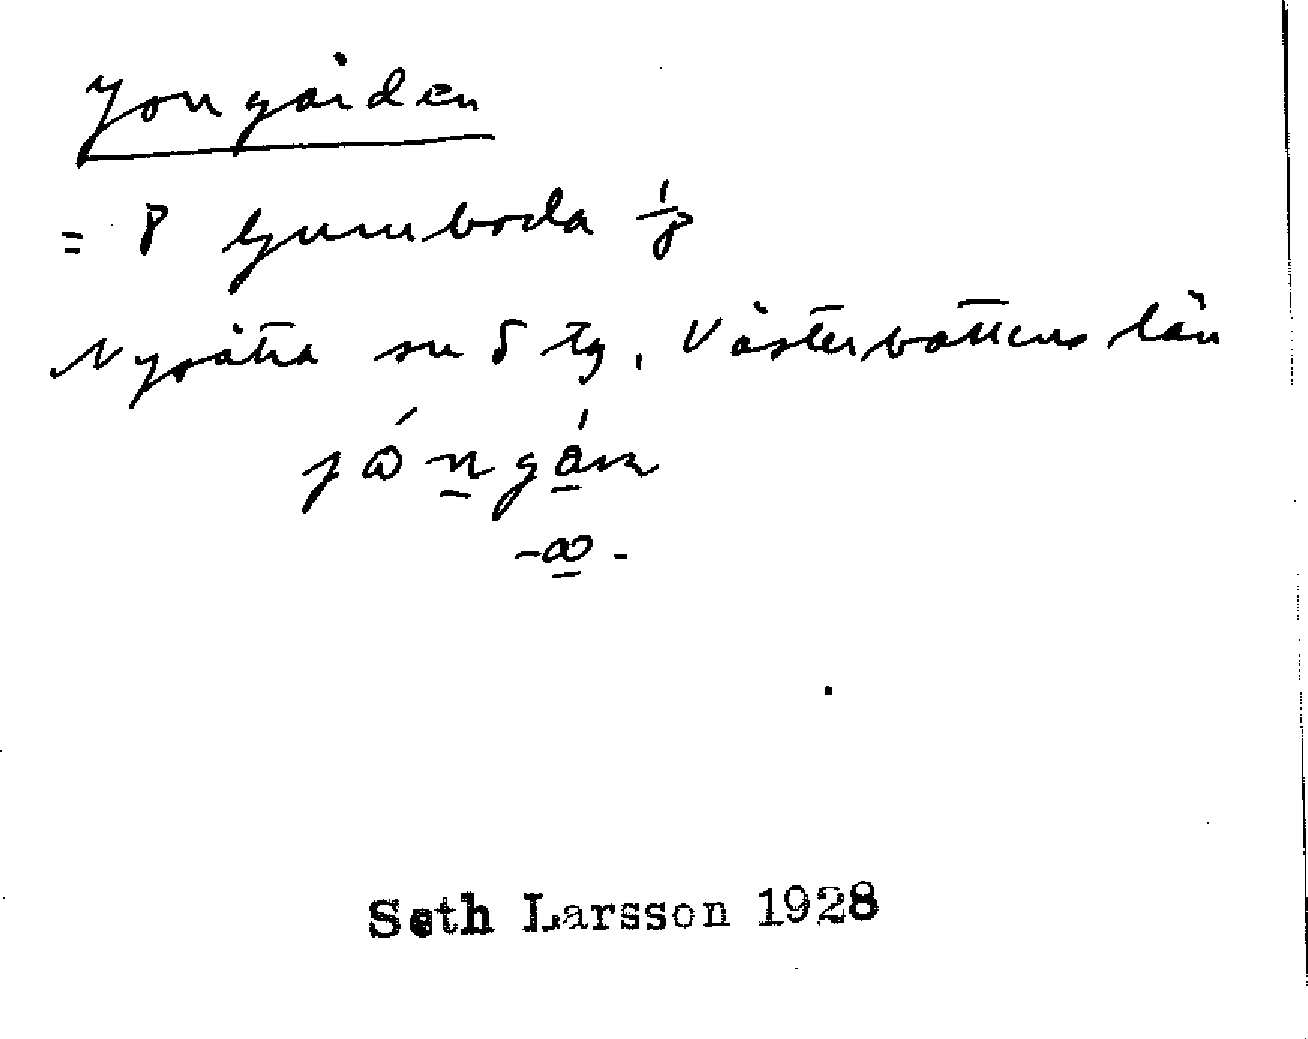 Jongården
= P Gumboda 1/8
Nysätra sn 5 tg. Västerbottens län
Seth Larsson 1928